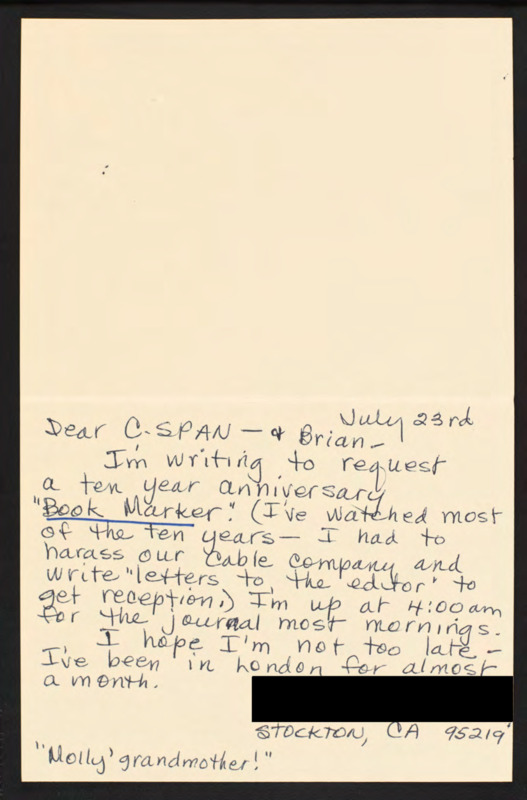 July 23rd
Dear C-SPAN — & Brian —
I'm writing to request
a ten year anniversary
"Book Marker." (I've watched most
of the ten years — I had to
harass our cable company and
write "letters to the editor" to
get reception.) I'm up at 4:00am
for the journal most mornings.
I hope I'm not too late —
I've been in London for almost
a month.
STOCKTON, CA 95219
"Molly' grandmother!"